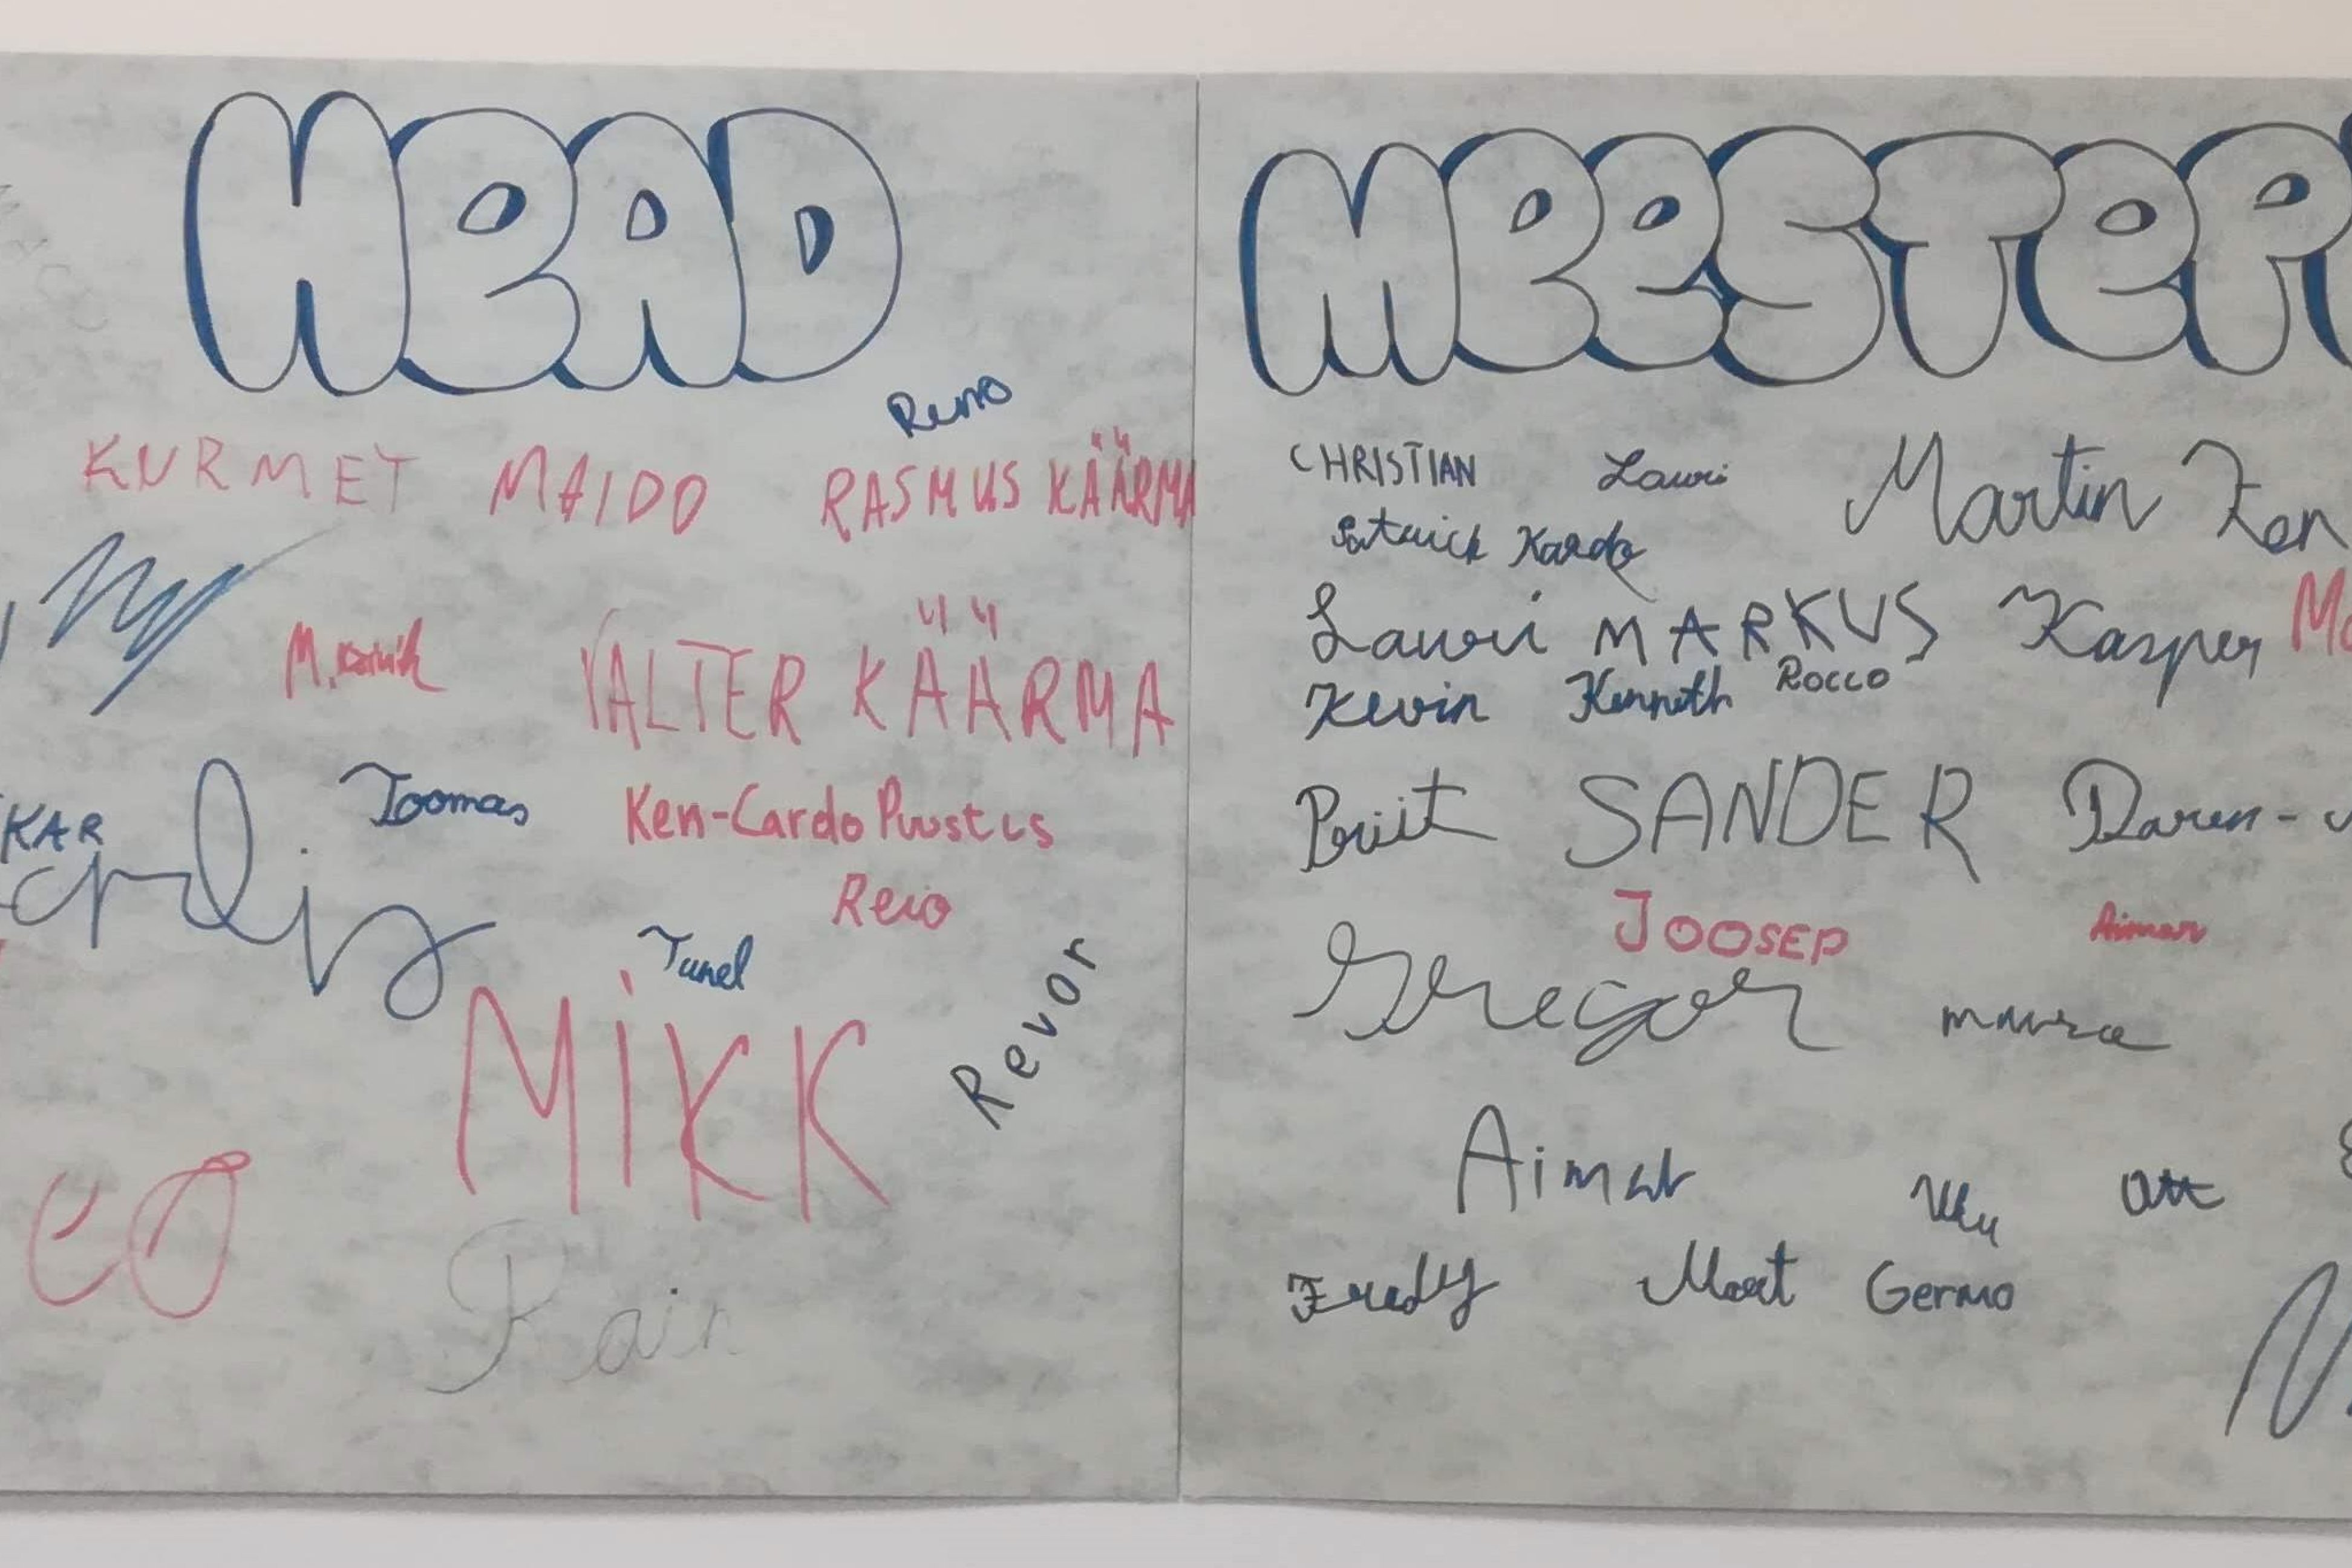 HEAD
Reno
KURMET MAIDO RASMUS KÄÄRMA
VALTER KÄÄRMA
KAR Toomas Ken-Cardo Puustus
Reio
Tanel
MIKK
Revor
Rain
MEESTER
CHRISTIAN Lauri Martin Ken
Patrick Kardo
Lauri MARKUS Kasper
Kevin Kenneth Rocco
Priit SANDER Daren-
JOOSEP Aimar
Gregor
Aimar
Uku Ott
Fredy Mart Germo